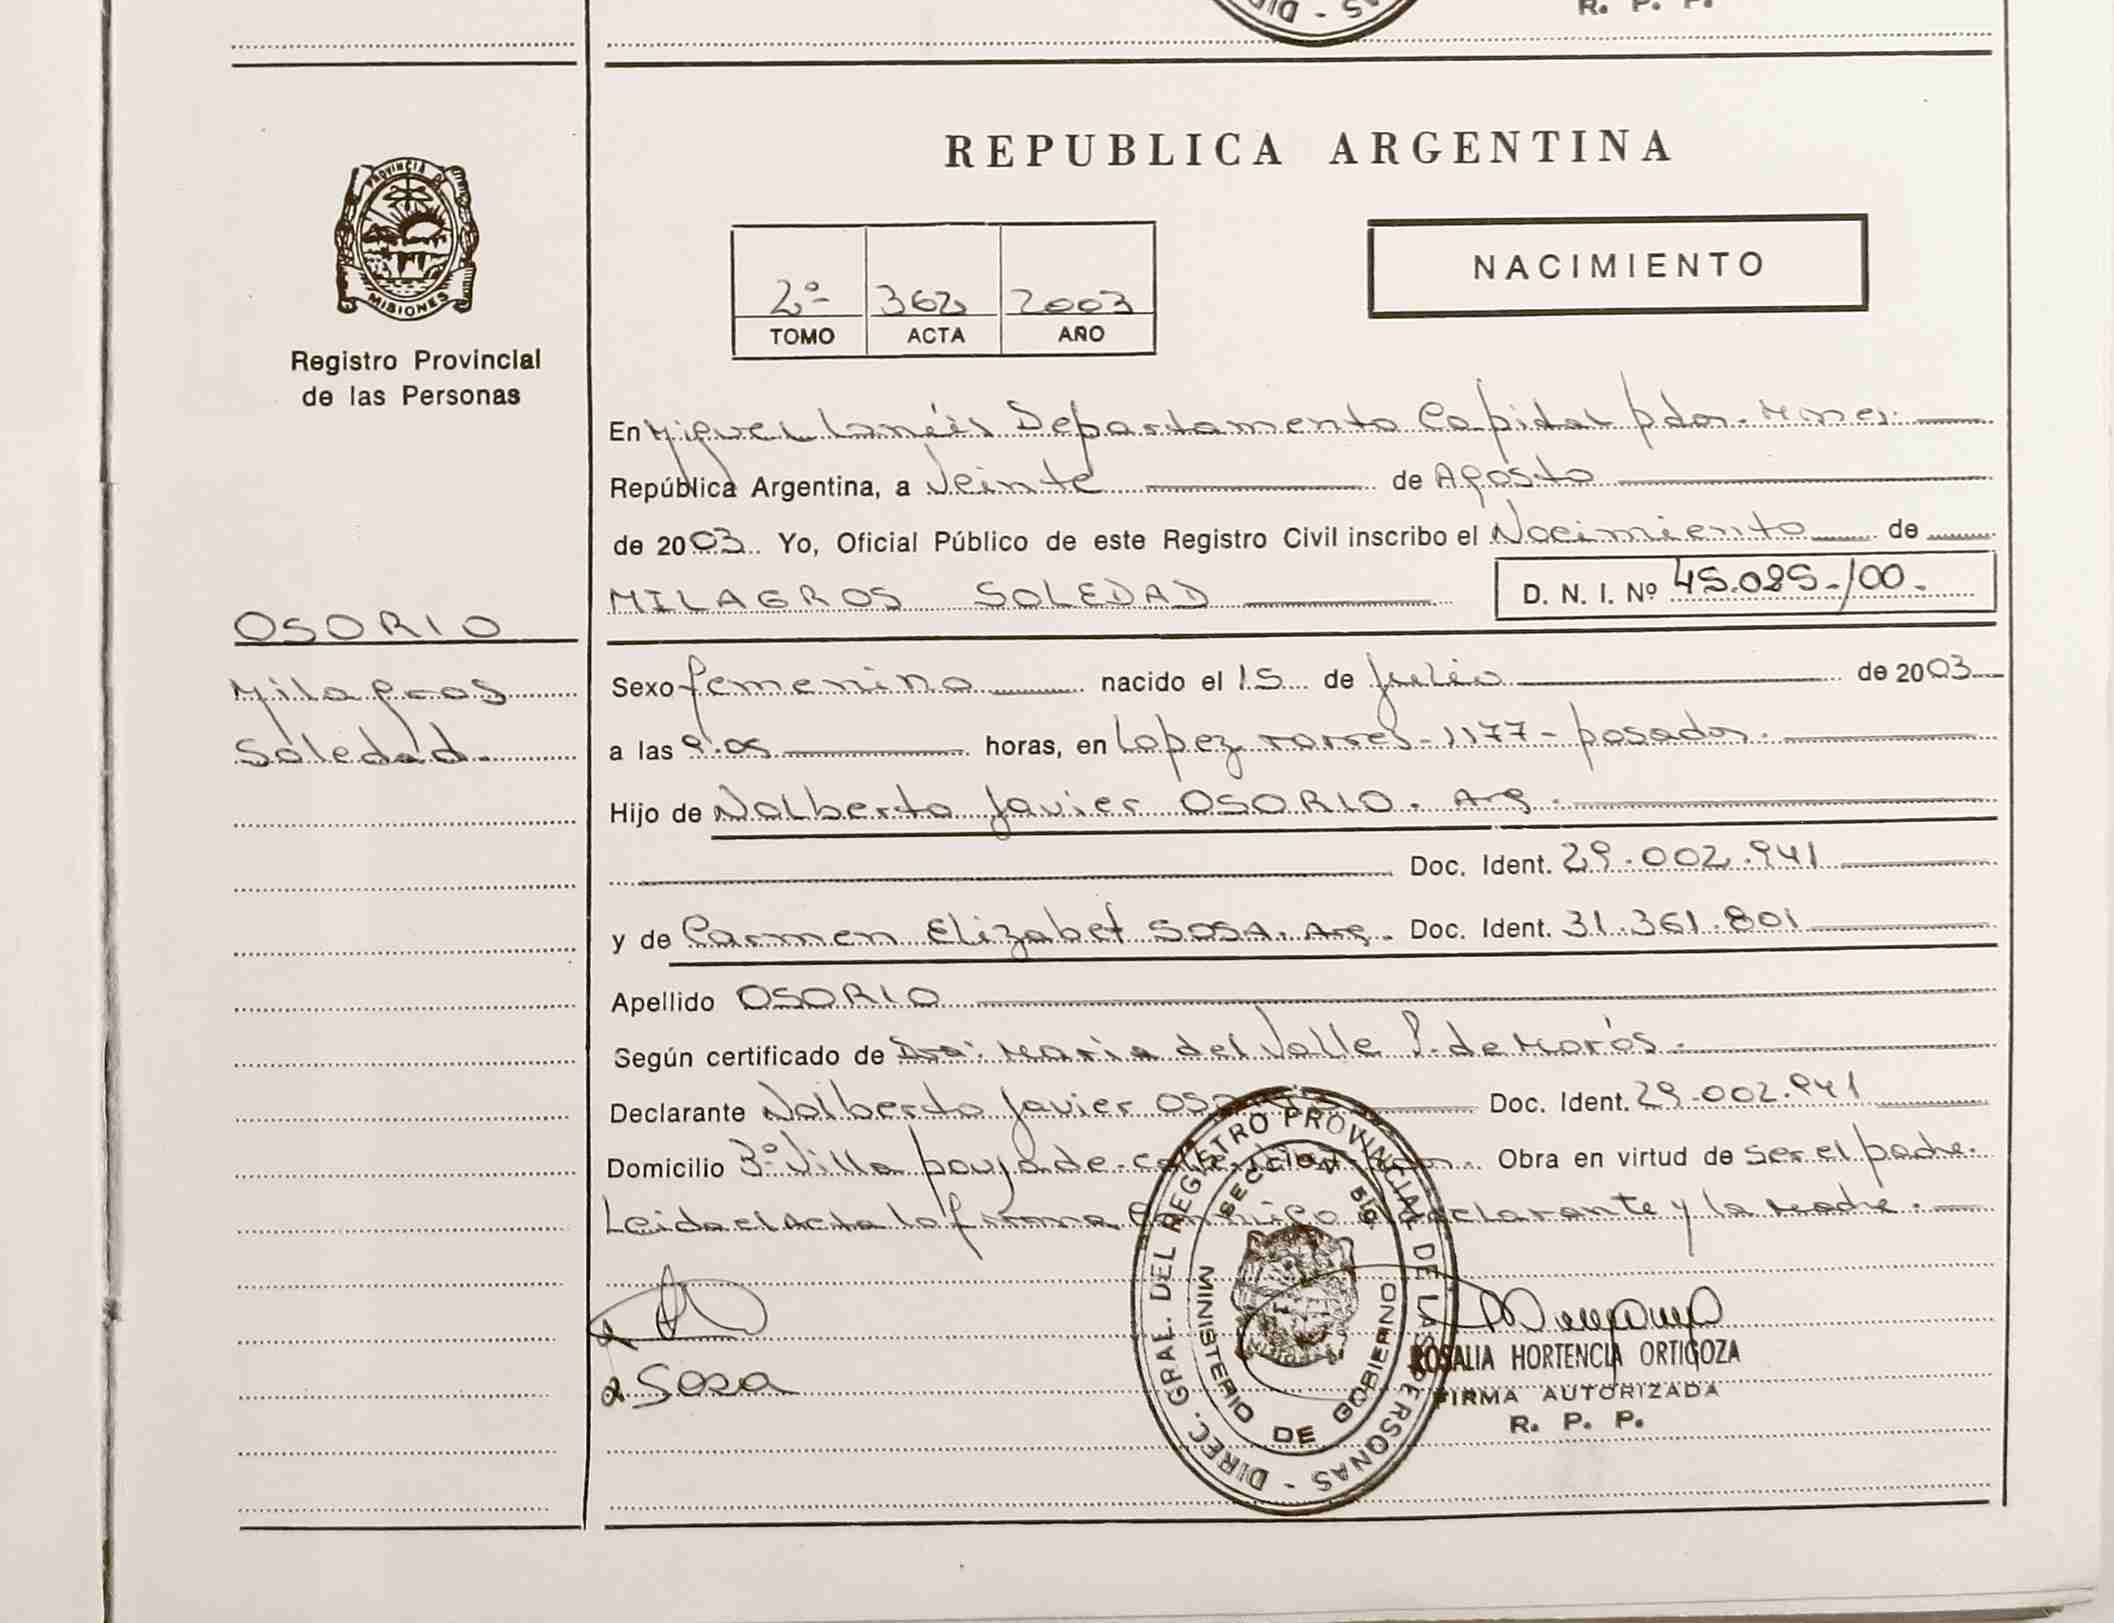 R. P. P.
PROVINCIA DE
MISIONES
Registro Provincial
de las Personas
OSORIO
Milagros
Soledad.
REPUBLICA ARGENTINA
2º 362 2003
TOMO ACTA AÑO
NACIMIENTO
En Miguel Lanús Departamento Capital pdas. Mnes.
República Argentina, a Veinte de Agosto
de 2003 Yo, Oficial Público de este Registro Civil inscribo el Nacimiento de
MILAGROS SOLEDAD D. N. I. Nº 45.025.100.
Sexo femenino nacido el 15 de Julio de 2003
a las 9.05 horas, en Lopez torres - 1177 - posadas.
Hijo de Nalberto Javier OSORIO. Arg.
Doc. Ident. 29.002.941
y de Carmen Elizabet SOSA. Arg. Doc. Ident. 31.361.801
Apellido OSORIO
Según certificado de Dra. Maria del Valle P. de Morós.
Declarante Nalberto Javier Doc. Ident. 29.002.941
Domicilio Bº Villa Obra en virtud de ser el padre.
Leida el Acta la firma Conmigo declarante y la Madre.
Sosa
DIREC. GRAL. DEL REGISTRO PROVINCIAL DE LAS PERSONAS
MINISTERIO DE GOBIERNO
ROSALIA HORTENCIA ORTIGOZA
FIRMA AUTORIZADA
R. P. P.